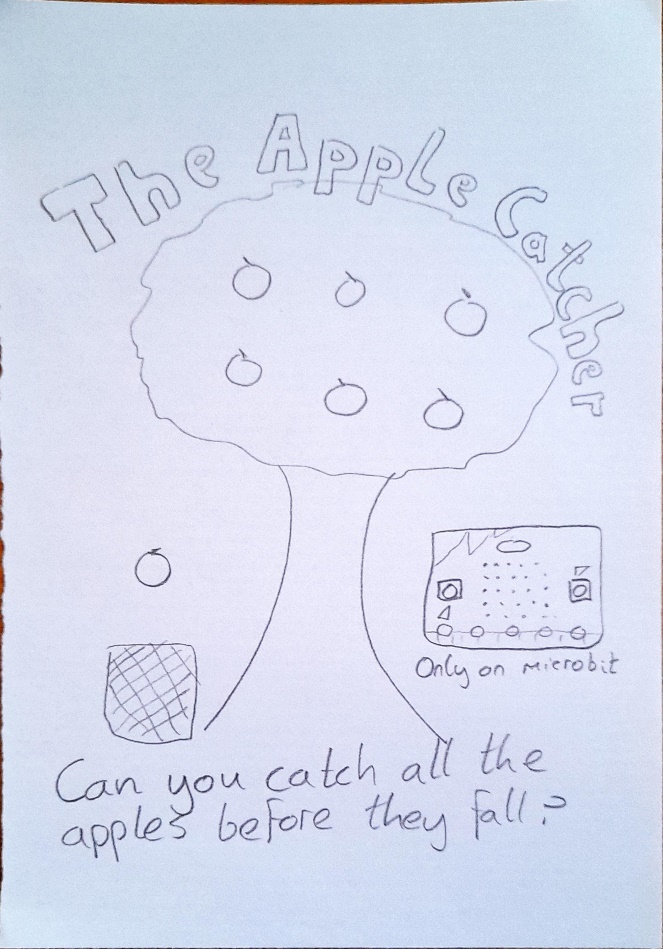 The Apple Catcher
Only on microbit
Can you catch all the
apples before they fall?